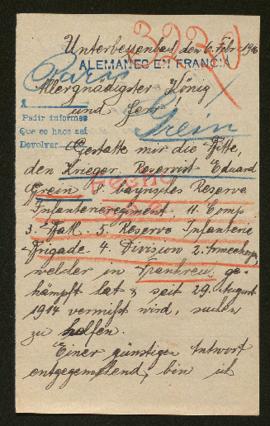 3220
Unterbessenbach den 6. Febr. 1916
ALEMANES EN FRANCIA
Paris
Allergnädigster König
und Herr!
1
Padir informes
Que se haga así
Devolver
Grein
Gestatte mir die Bitte,
den Krieger Reservist Eduard
Grein 8. Bayrisches Reserve
Infanterieregiment. 11. Comp
3. Bat. 5. Reserve Infanterie
Brigade 4. Division 2. Armeekorps
welcher in Frankreich ge-
kämpft hat & seit 29. August
1914 vermißt wird, suchen
zu helfen.
Einer günstigen Antwort
entgegensehend, bin ich